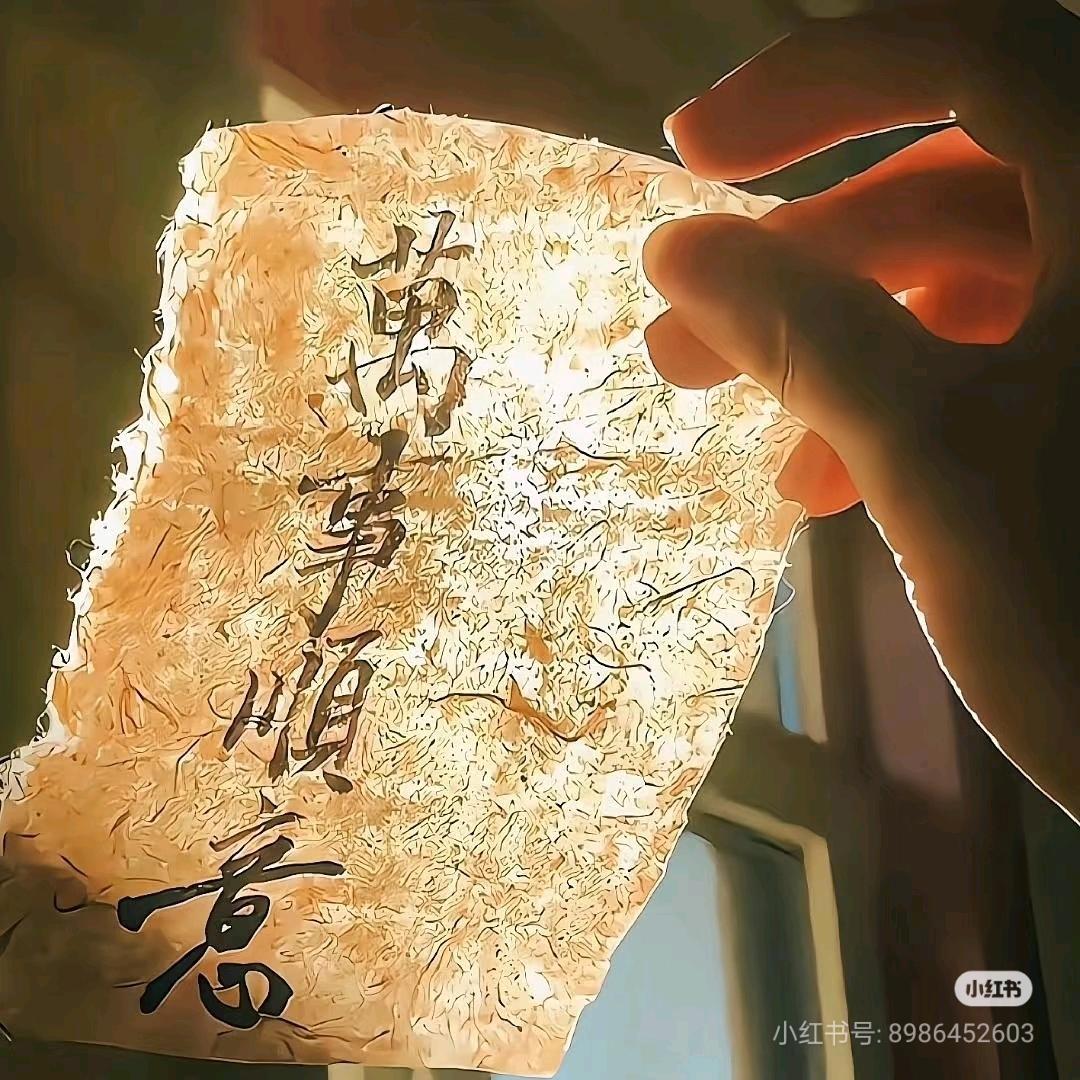 萬事順意
小红书
小红书号: 8986452603